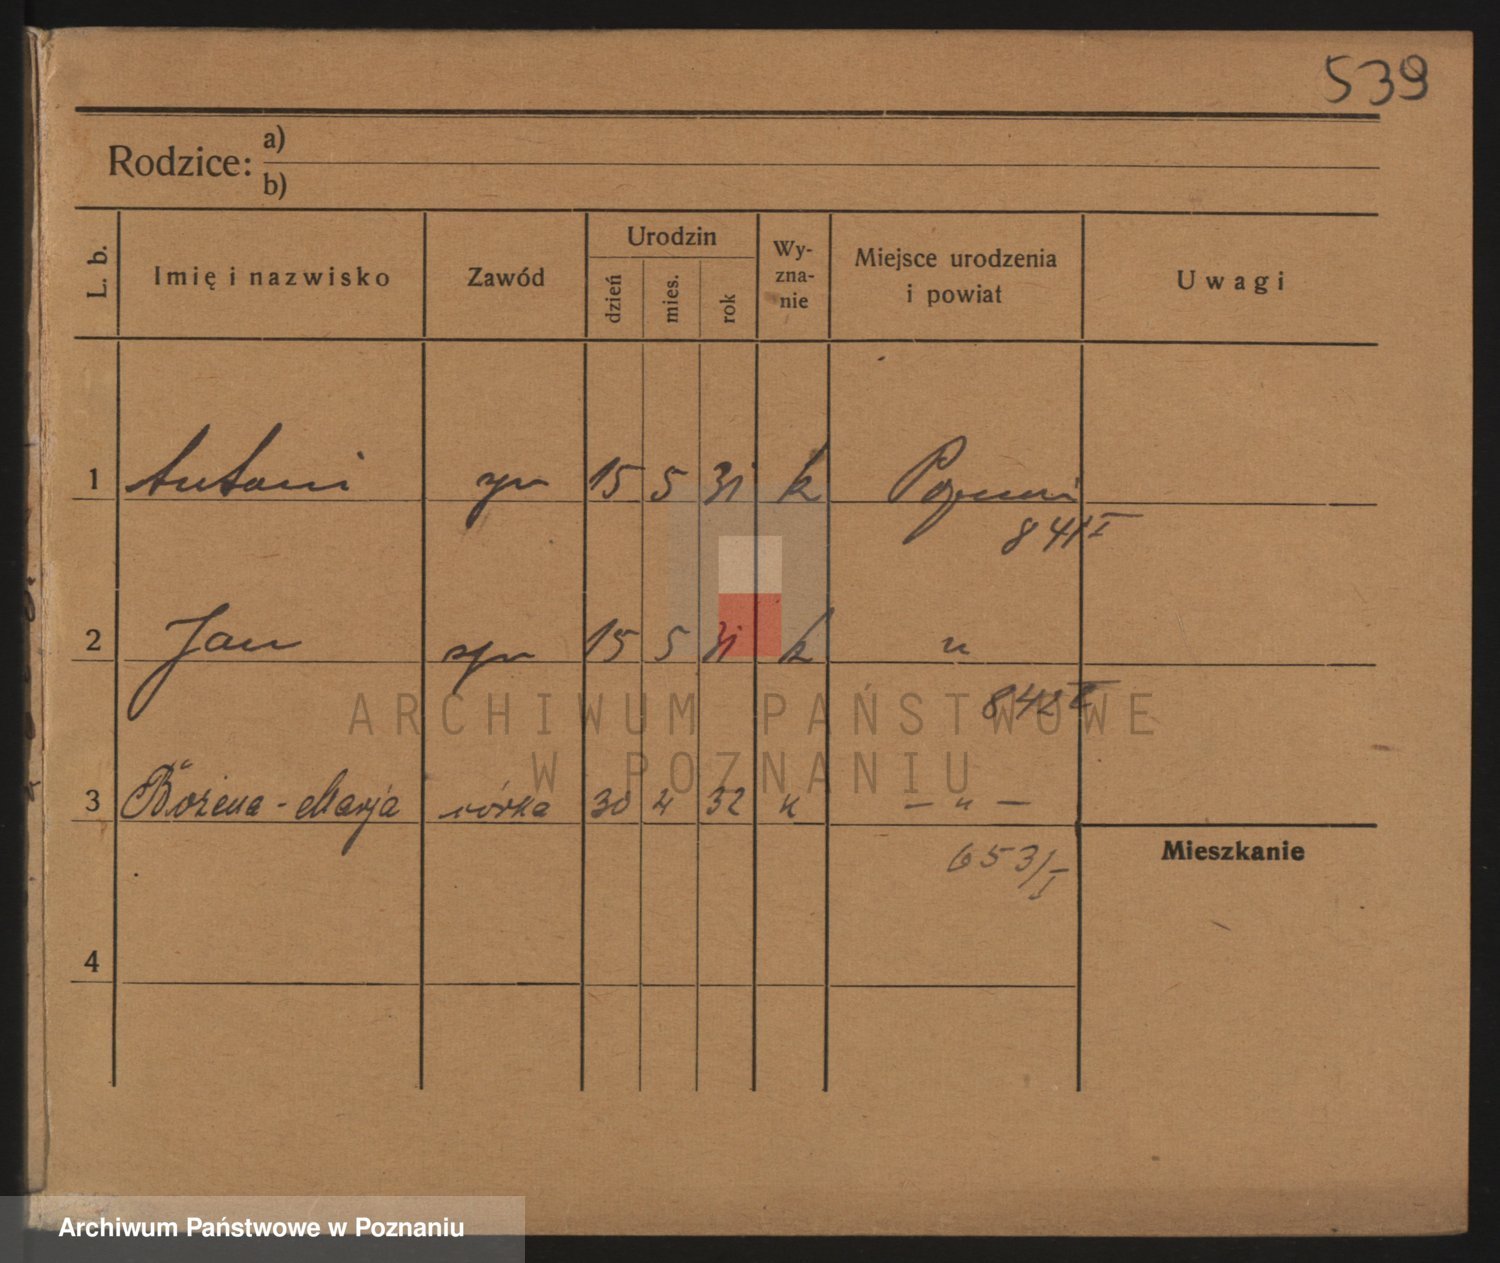 539
Rodzice: a)
b)
L. b. Imię i nazwisko Zawód Urodzin dzień mies. rok Wy-zna-nie Miejsce urodzenia i powiat Uwagi
1 Antoni syn 15 5 31 k Poznań
841 I
2 Jan syn 15 5 31 k "
842 I
ARCHIWUM PAŃSTWOWE
W POZNANIU
3 Bożena - Marja córka 30 4 32 k — " —
653/I
Mieszkanie
4
Archiwum Państwowe w Poznaniu